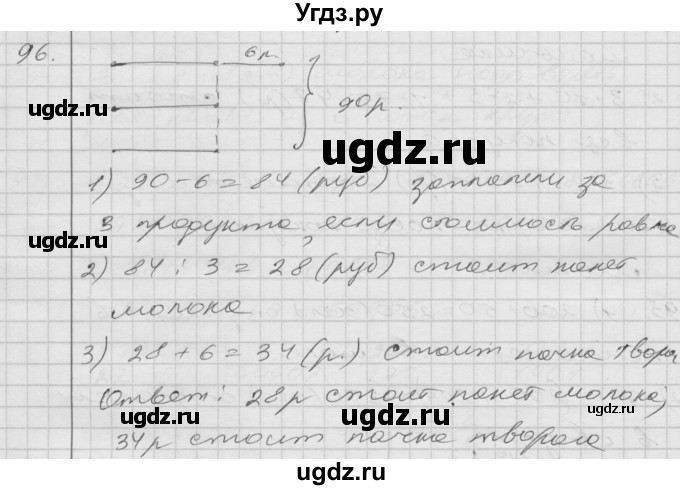 Угдз.ру
96.
6 р.
90 р.
1) 90 - 6 = 84 (руб) заплатили за
3 продукта, если стоимость равна
2) 84 : 3 = 28 (руб) стоит пакет
молока
3) 28 + 6 = 34 (р.) стоит пачка творога
Ответ: 28 р стоит пакет молока;
34 р стоит пачка творога
ugdz.ru
ugdz.ru
ugdz.ru
ugdz.ru
ugdz.ru
ugdz.ru
ugdz.ru
ugdz.ru
ugdz.ru
ugdz.ru
ugdz.ru